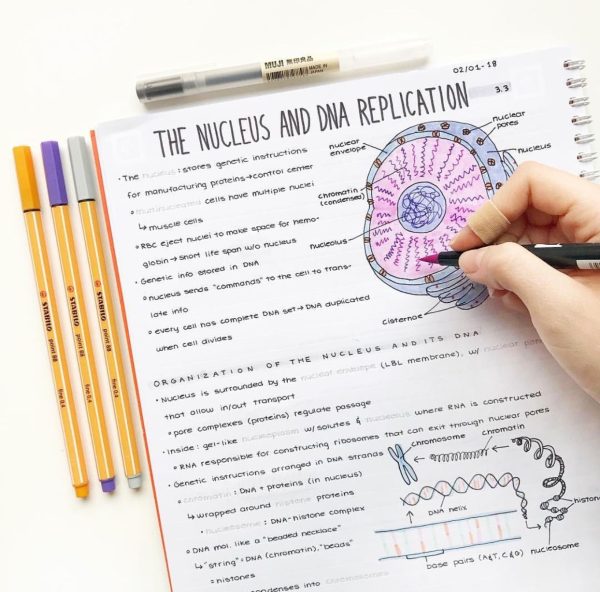 MUJI 無印良品
MADE IN JAPAN
02/01-18
3.3
THE NUCLEUS AND DNA REPLICATION
• The nucleus: stores genetic instructions
for manufacturing proteins → control center
○ multinucleated cells have multiple nuclei
↳ muscle cells
○ RBC eject nuclei to make space for hemo-
globin → short life span w/o nucleus
• Genetic info stored in DNA
○ nucleus sends "commands" to the cell to trans-
late info
○ every cell has complete DNA set → DNA duplicated
when cell divides
nuclear
envelope
chromatin
(condensed)
nucleolus
nuclear
pores
nucleus
cisternae
STABILO point 88 fine 0.4
STABILO point 88 fine 0.4
STABILO point 88 fine 0.4
ORGANIZATION OF THE NUCLEUS AND ITS DNA
• Nucleus is surrounded by the nuclear envelope (LBL membrane), w/ nuclear
that allow in/out transport
○ pore complexes (proteins) regulate passage
• Inside: gel-like nucleoplasm w/ solutes & nucleolus where RNA is constructed
○ RNA responsible for constructing ribosomes that can exit through nuclear pores
• Genetic instructions arranged in DNA strands
○ chromatin: DNA + proteins (in nucleus)
↳ wrapped around histone proteins
• nucleosome: DNA-histone complex
○ DNA mol. like a "beaded necklace"
↳ "string": DNA (chromatin), "beads":
histones
condenses into chromosomes
chromosome
chromatin
DNA helix
histone
nucleosome
base pairs (A&T, C&G)